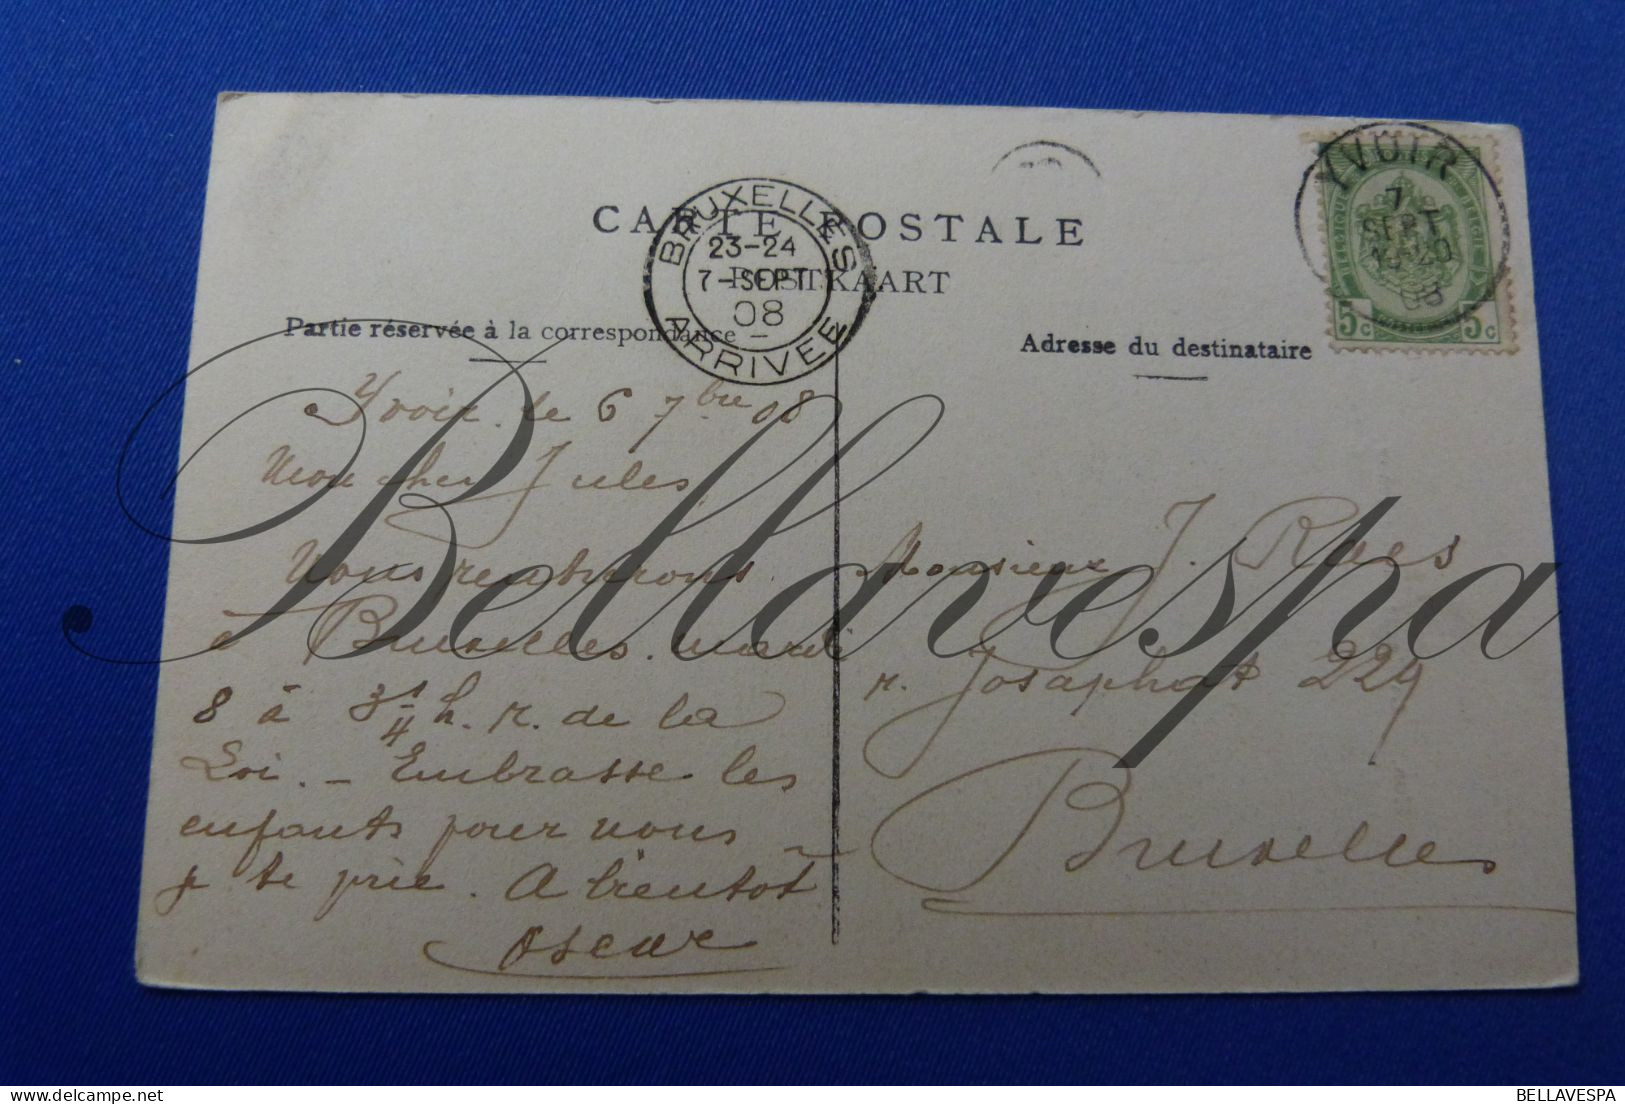 CARTE POSTALE
POSTKAART
BRUXELLES
23-24
7-SEPT
08
ARRIVEE
YVOIR
7
SEPT
08
BELGIQUE
5c 5c
Partie réservée à la correspondance
Adresse du destinataire
Yvoir le 6 7bre 08
Mon cher Jules,
Nous rentrerons
à Bruxelles mardi
8 à 3 1/4 h. r. de la
Loi. - Embrasse les
enfants pour nous
je te prie. A bientôt
Oscar
Monsieur J. Raes
r. Josaphat 229
Bruxelles
Bellavespa
BELLAVESPA